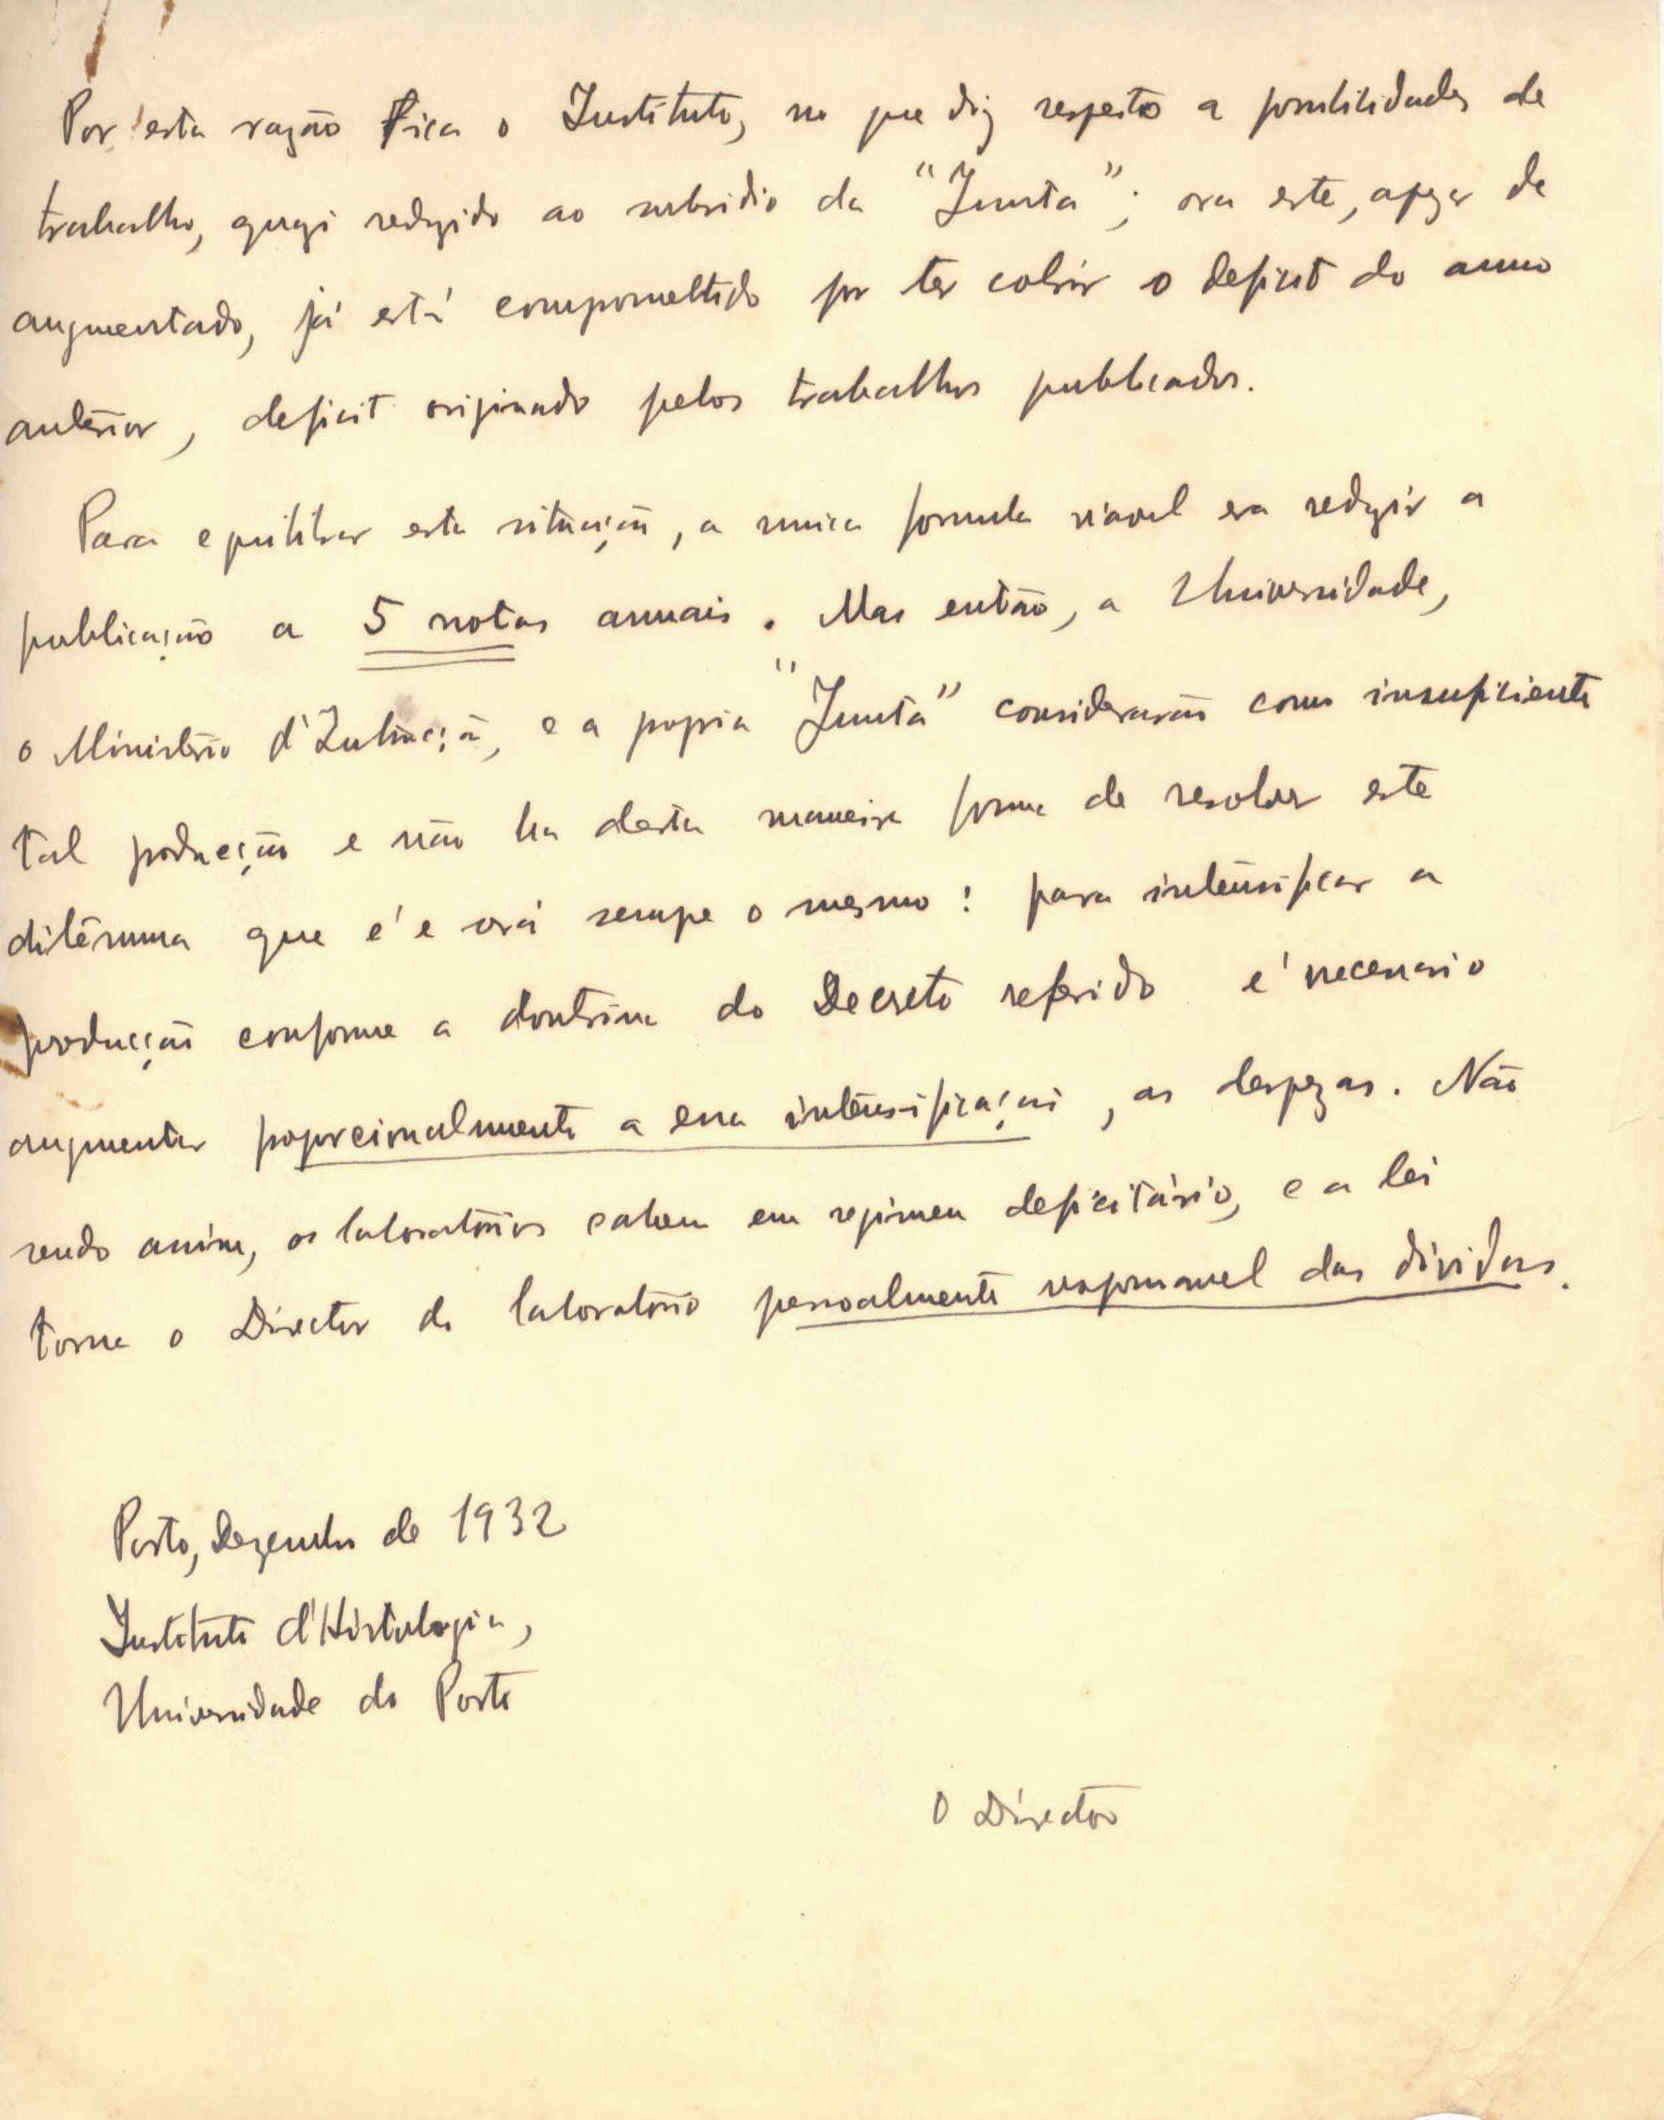 Por esta razão Fica o Instituto, no que diz respeito a possibilidades de
trabalho, quazi reduzido ao subsidio da "Junta"; ora este, apezar de
augmentado, já está compromettido por ter cobrir o deficit do anno
anterior, deficit originado pelos trabalhos publicados.
Para equilibrar esta situação, a unica formula viavel era reduzir a
publicação a 5 notas annuais. Mas então, a Universidade,
o Ministério d'Instrucção, e a propria "Junta" considerarão como insuficiente
tal producção e não ha desta maneira forma de resolver este
dilêmma que é e será sempre o mesmo: para intensificar a
producção conforme a doutrina do Decreto referido é necessario
augmentar proporcionalmente a essa intensificação, as despezas. Não
sendo assim, os laboratórios cahem em regimen deficitário, e a lei
torna o Director do laboratório pessoalmente responsavel das dividas.
Porto, Dezembro de 1932
Instituto d'Histologia,
Universidade do Porto
O Director